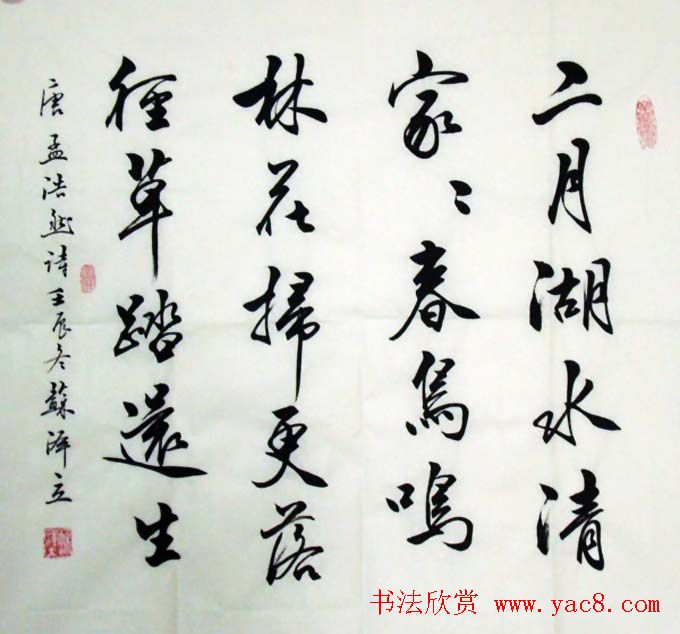 二月湖水清
家〻春鳥鳴
林花掃更落
徑草踏還生
唐孟浩然詩壬辰冬蘇澤立
书法欣赏 www.yac8.com